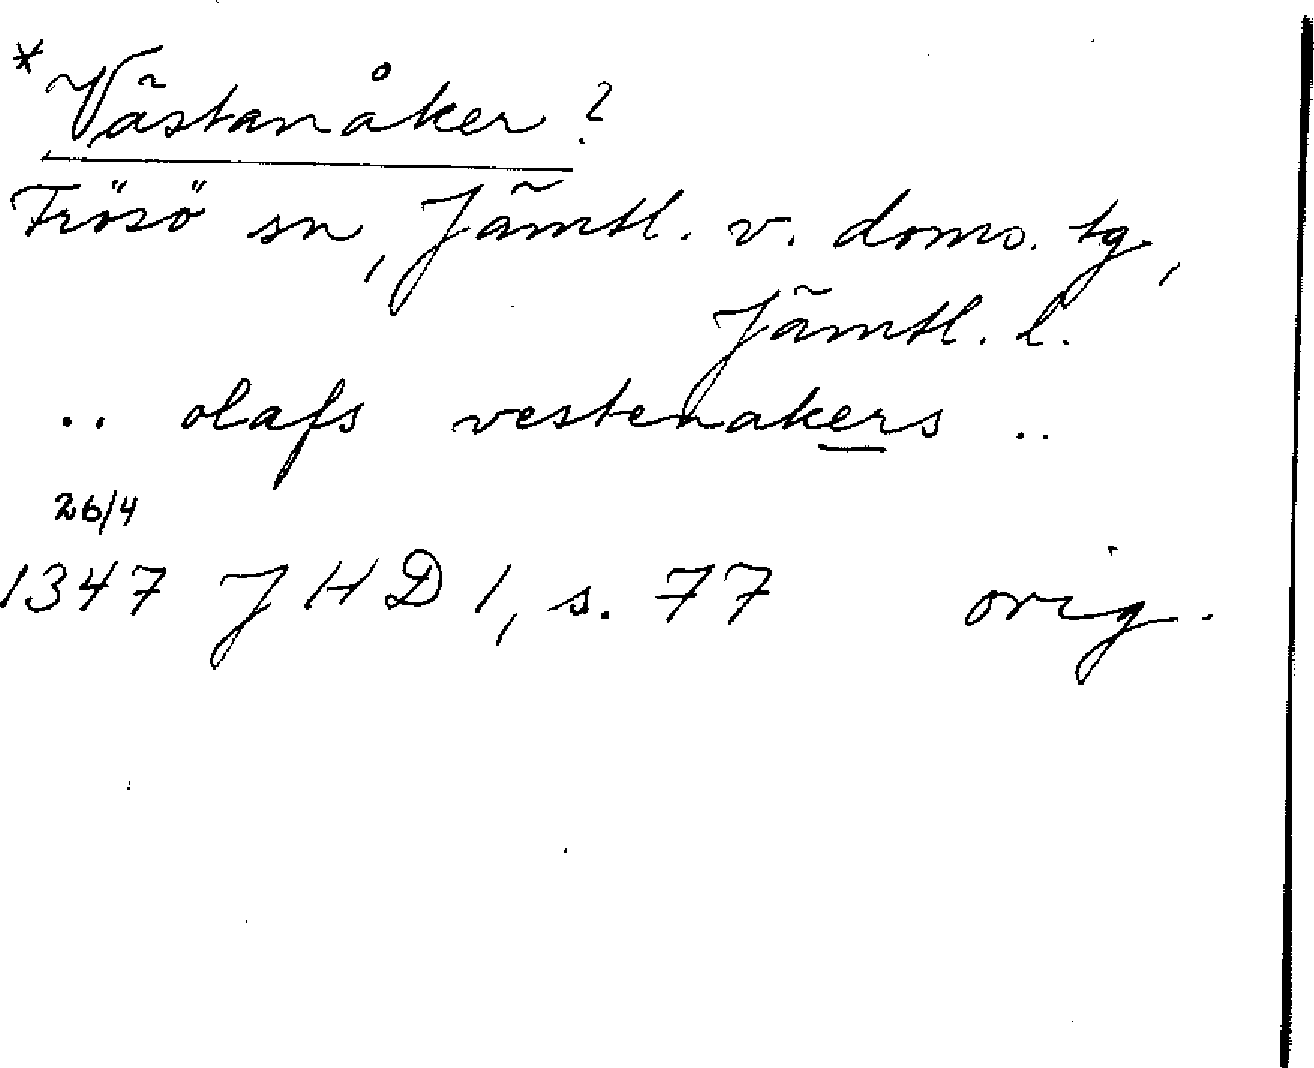 *Västanåker?
Frösö sn, Jämtl. v. doms. tg,
Jämtl. l.
.. olafs vestenakers ..
26/4
1347 JHD 1, s. 77 orig.